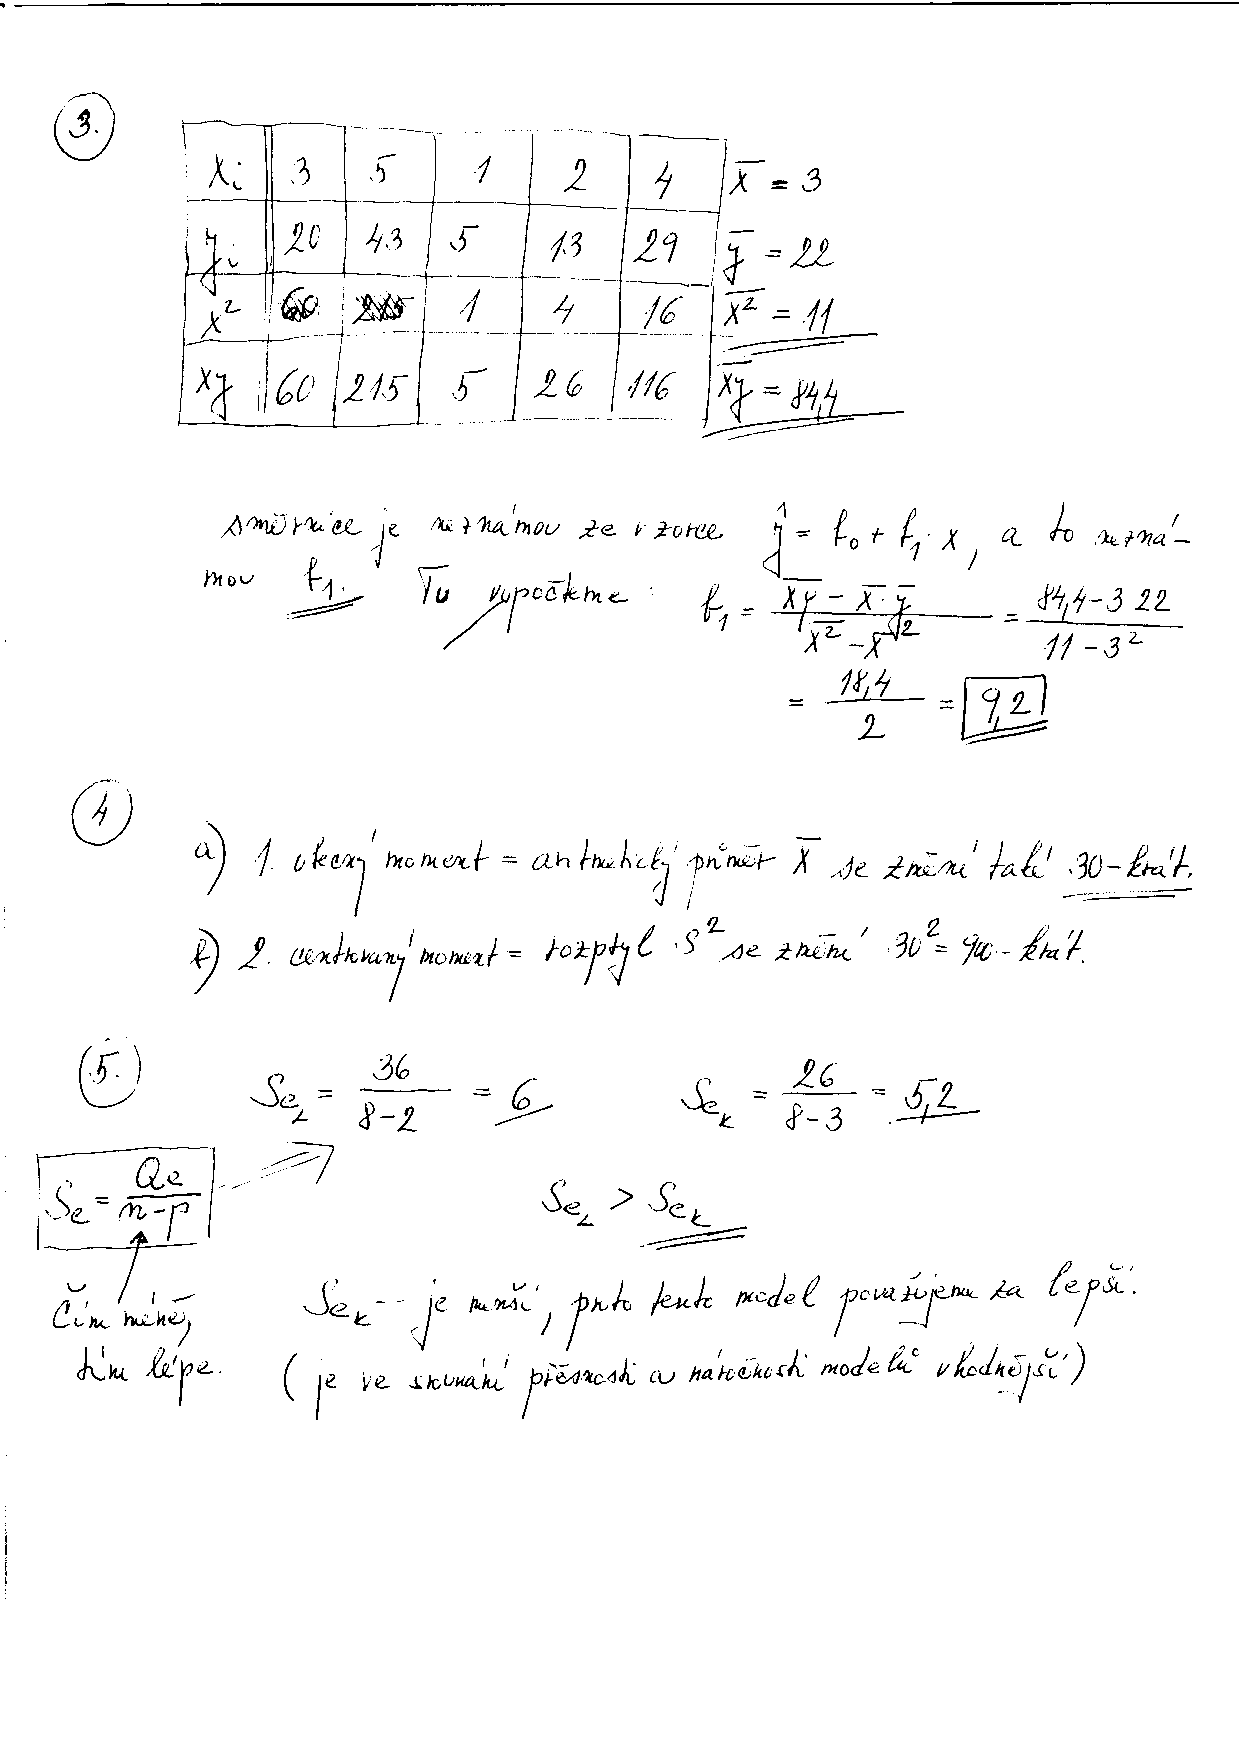 3.
xi 3 5 1 2 4 x̅ = 3
yi 20 43 5 13 29 y̅ = 22
x² 1 4 16 x̅² = 11
xy 60 215 5 26 116 x̅y̅ = 84,4
směrnice je neznámou ze vzorce ŷ = b₀ + b₁ · x, a to nezná-
mou b₁. Tu vypočteme : b₁ = (x̅y̅ - x̅ · y̅) / (x̅² - x̅²) = (84,4 - 3 22) / (11 - 3²)
= 18,4 / 2 = 9,2
4
a) 1. obecný moment = aritmetický průměr x̅ se změní také 30-krát.
b) 2. centrovaný moment = rozptyl s² se změní 30² = 900-krát.
5.
Se_L = 36 / (8-2) = 6 Se_k = 26 / (8-3) = 5,2
Se = Qe / (n-p)
Se_L > Se_k
Čím méně, Se_k - je menší, proto tento model považujeme za lepší.
tím lépe. (je ve srovnání přesnosti a náročnosti modelů vhodnější)